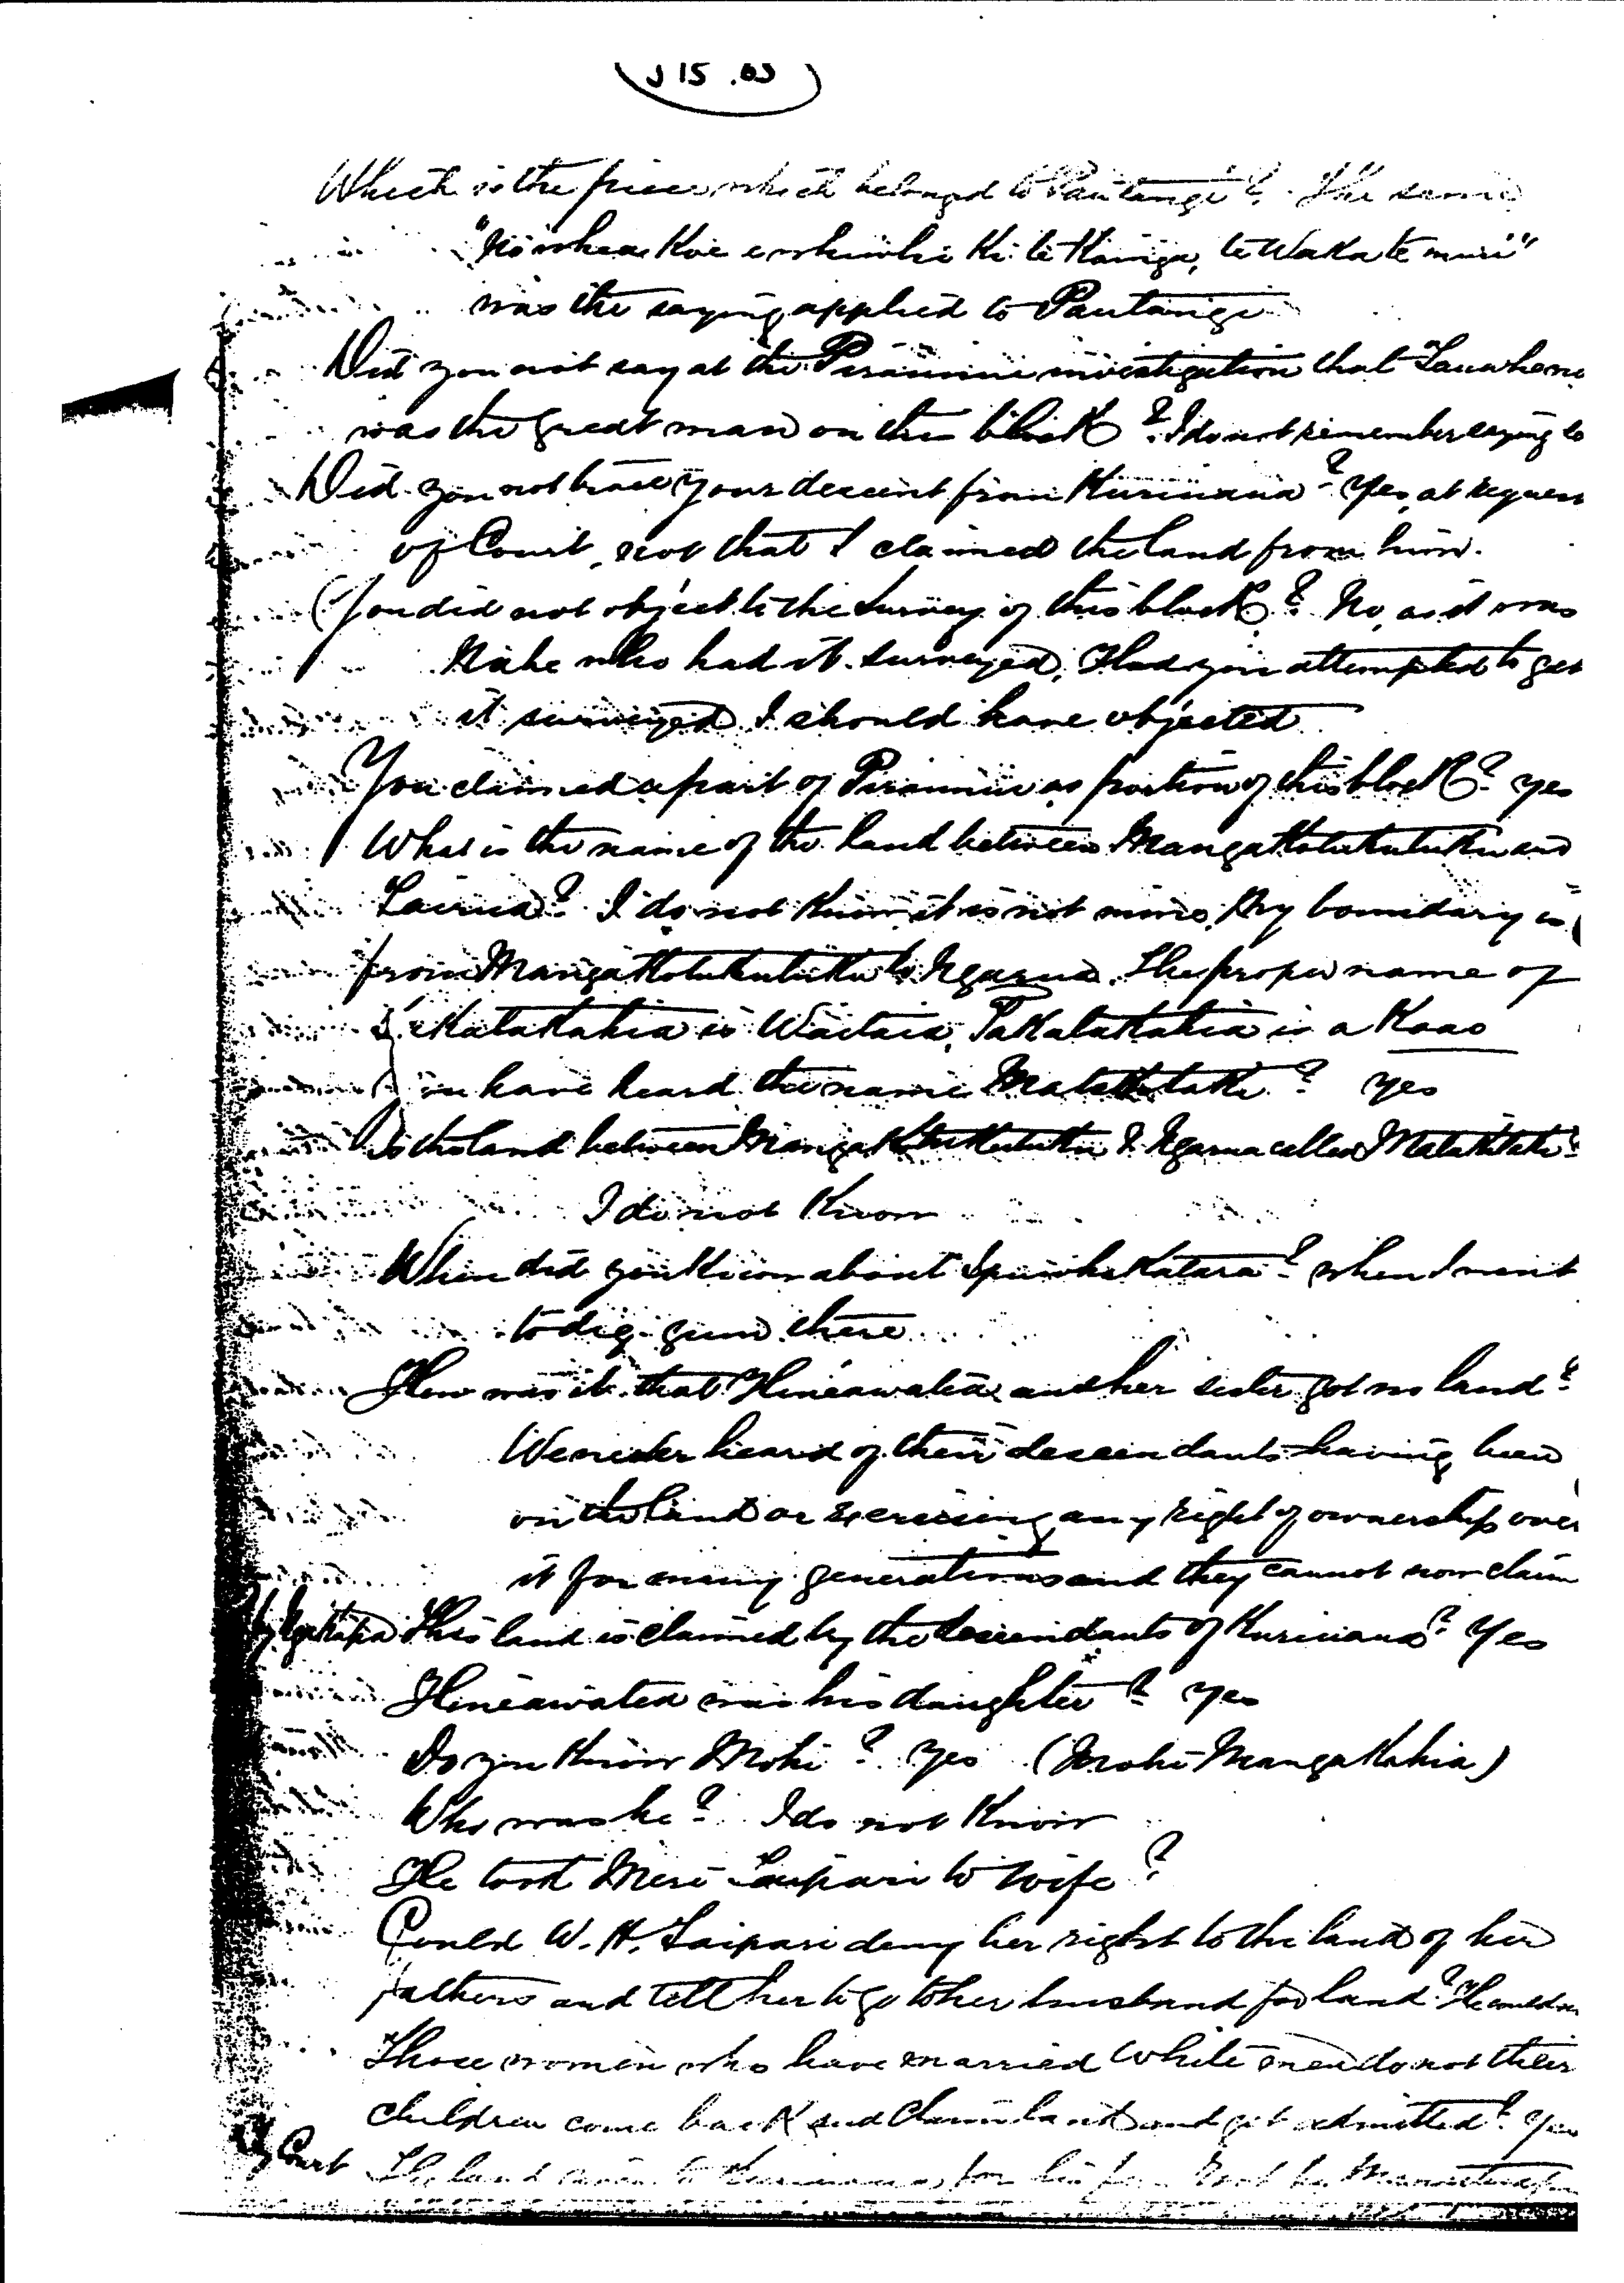 Which is the piece which belongd to Pautangi? The same
"No whea koe e whiwhi ki te Kainga, te Waka te muri"
was the saying applied to Pautangi
Did you not say at the Piraunui investigation that
was the great man on this block? I do not remember saying so
Did you not trace your descent from Kuriuaua? Yes, at request
of Court, not that I claimed the land from him.
You did not object to the survey of this block? No, as it was
Nahe who had it surveyed. Had you attempted to get
it surveyed I should have objected
You claimed a part of Piraunui as portion of this block? Yes
What is the name of the land between Mangakotukutuku and
Tairua? I do not know it is not mine. My boundary is
from Mangakotukutuku to Ngarua. The proper name of
is Waitaia, is a Kaao
You have heard the name Matakitaki? Yes
Is the land between Mangakotukutuku & Ngarua called Matakitaki?
I do not know
When did you know about? when I went
to dig gum there
How was it that Hineawatea and her sister got no land?
We never heard of their descendants having been
on the land or exercising any right of ownership over
it for many generations and they cannot now claim
This land is claimed by the descendants of Kuriuaua? Yes
Hineawatea was his daughter? Yes
Do you know Mohi? Yes (Mohi Mangakahia)
Who was he? I do not know
He took Meri Taipari to wife?
Could W. H. Taipari deny her right to the land of her
fathers and tell her to go to her husband for land? He could
Those women who have married white men do not their
children come back and claim land and get admitted? Yes
By Court The land